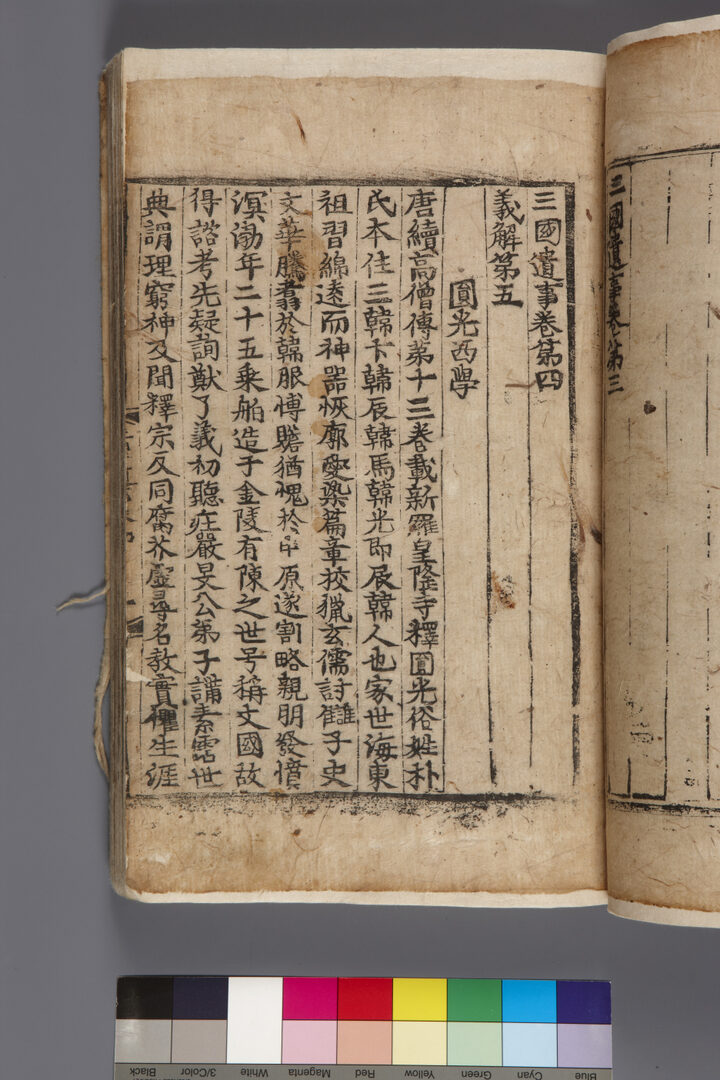 三國遺事卷第三
三國遺事卷第四
義解第五
圓光西學
唐續高僧傳第十三卷載新羅皇隆寺釋圓光俗姓朴
氏本住三韓卞韓辰韓馬韓光即辰韓人也家世海東
祖習綿遠而神器恢廓愛染篇章校獵玄儒討讎子史
文華騰翥於韓服愽贍猶愧於中原遂割略親朋發憤
溟渤年二十五乗舶造于金陵有陳之世号稱文國故
得諮考先疑詢猷了義初聽荘嚴旻公弟子講素霑世
典謂理窮神及聞釋宗反同腐芥虛尋名教實懼生涯
Black
3/Color
White
Magenta
Red
Yellow
Green
Cyan
Blue